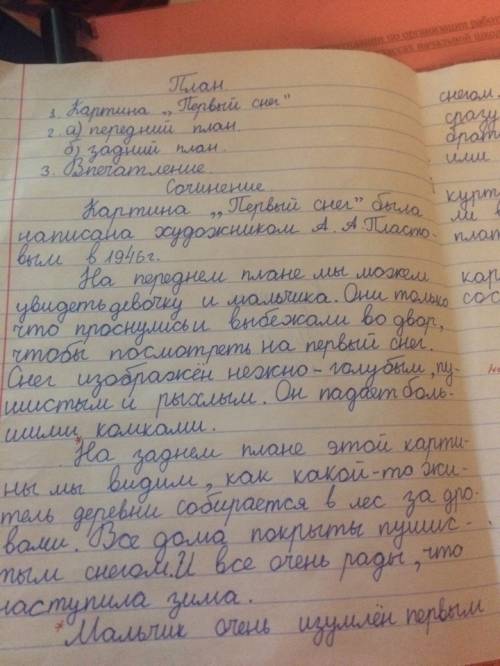 ации по организации рабо
ассах начальной школ
План.
1. Картина „Первый снег"
2. а) передний план.
б) задний план.
3. Впечатление.
Сочинение.
Картина „Первый снег" была
написана художником А. А Пласто-
вым в 1946г.
На переднем плане мы можем
увидеть девочку и мальчика. Они только
что проснулись и выбежали во двор,
чтобы посмотреть на первый снег.
Снег изображён нежно-голубым, пу-
шистым и рыхлым. Он падает боль-
шими комками.
На заднем плане этой карти-
ны мы видим, как какой-то жи-
тель деревни собирается в лес за дро-
вами. Все дома покрыты пушис-
тым снегом. И все очень рады, что
наступила зима.
*Мальчик очень изумлён первым
снегом.
сразу
брат
ими
курт
ли в
плат
кар
сос